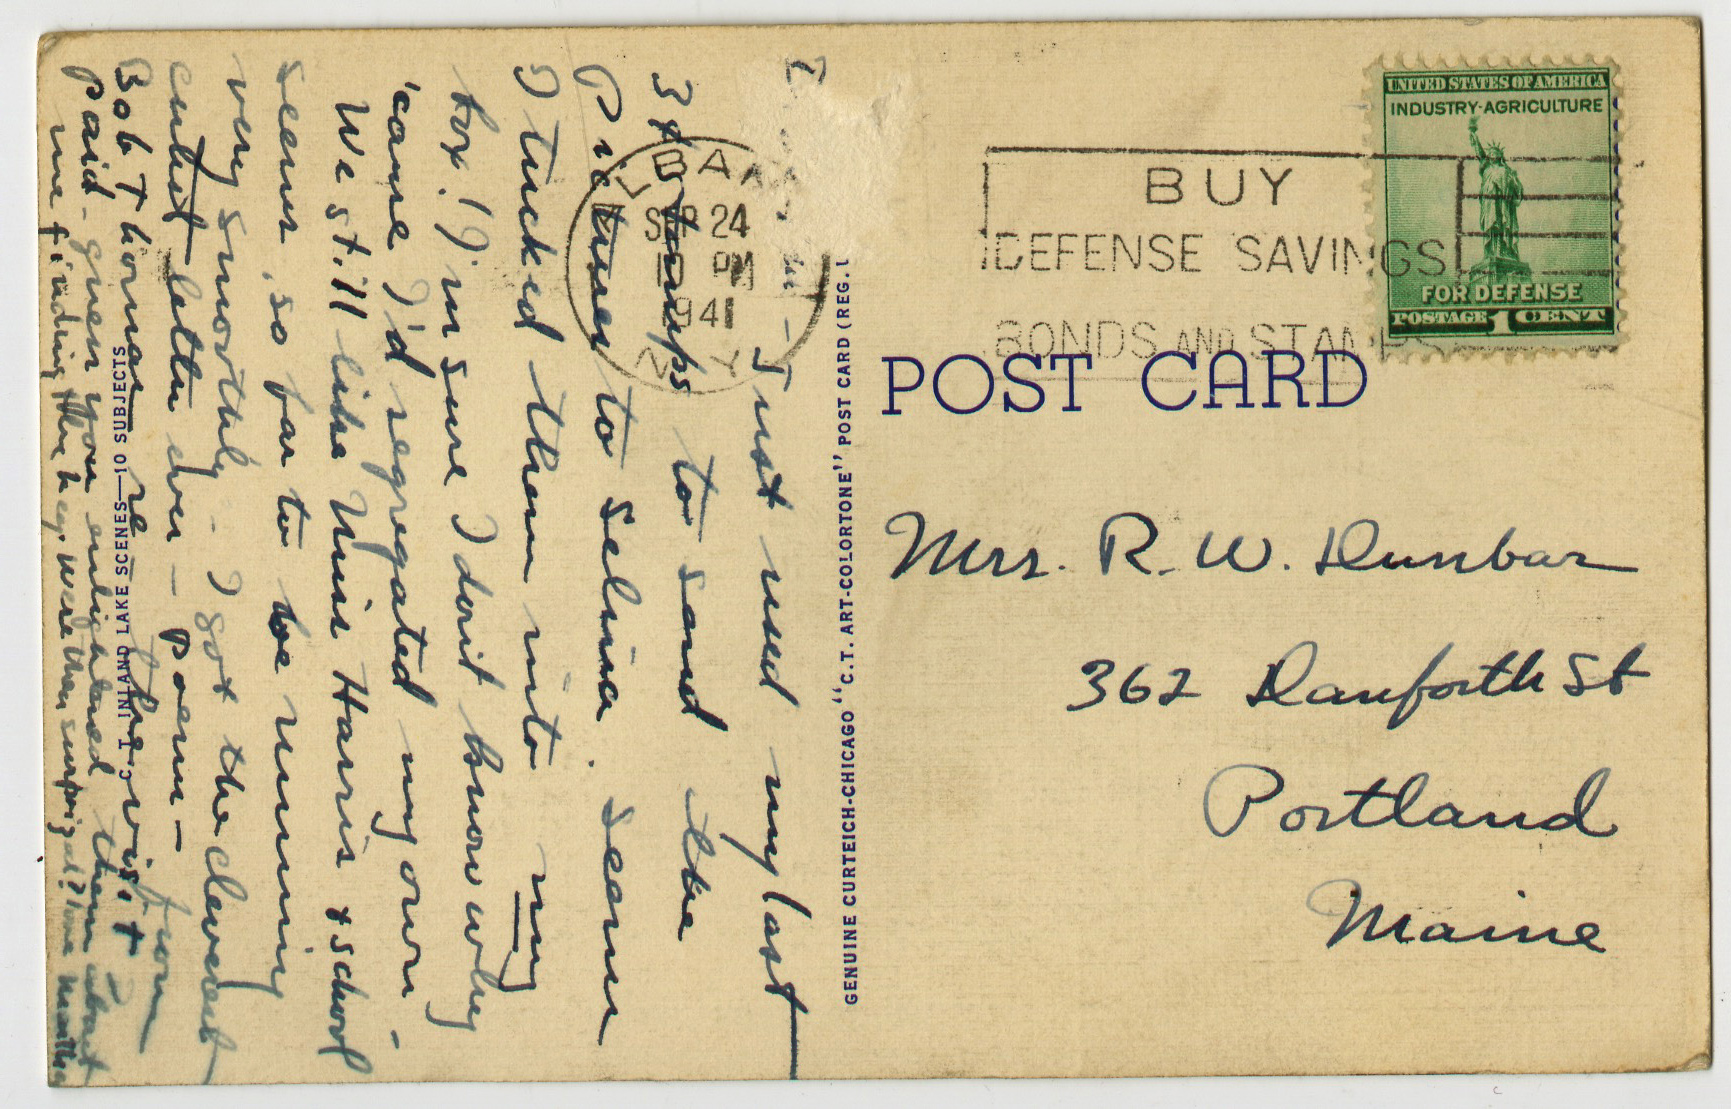 UNITED STATES OF AMERICA
INDUSTRY-AGRICULTURE
FOR DEFENSE
POSTAGE 1 CENT
BUY
DEFENSE SAVINGS
BONDS AND STAMPS
ALBANY
SEP 24
PM
1941
N.Y.
POST CARD
Mrs. R. W. Dunbar
362 Danforth St
Portland
Maine
GENUINE CURTEICH-CHICAGO "C.T. ART-COLORTONE" POST CARD (REG.
C.T. INLAND LAKE SCENES—10 SUBJECTS
- Just used my last
3¢ stamps to send the
Pictures to Selma. Seems
I tucked them into my
box! I'm sure I don't know why
'cause I'd segregated my own -
We still like Miss Harris & school
seems, so far to be running
very smoothly - I got the cleverest
letter ever - Poem - from
Bob Thomas re - the visit
paid - guess you enlightened them about
me finding the key. Were they surprized?